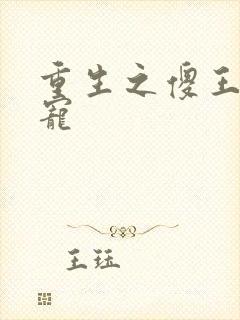 重生之傻王
寵
王珏